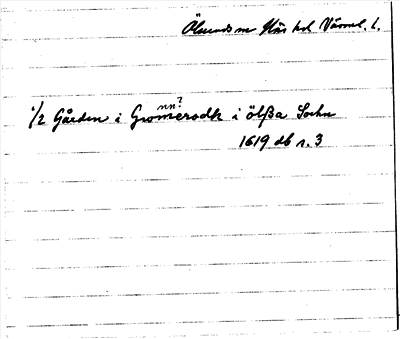 Ölseruds sn Näs hd Värml. l.
nn?
1/2 Gården i Gromersodh i ölßa Sochn
1619 db s. 3